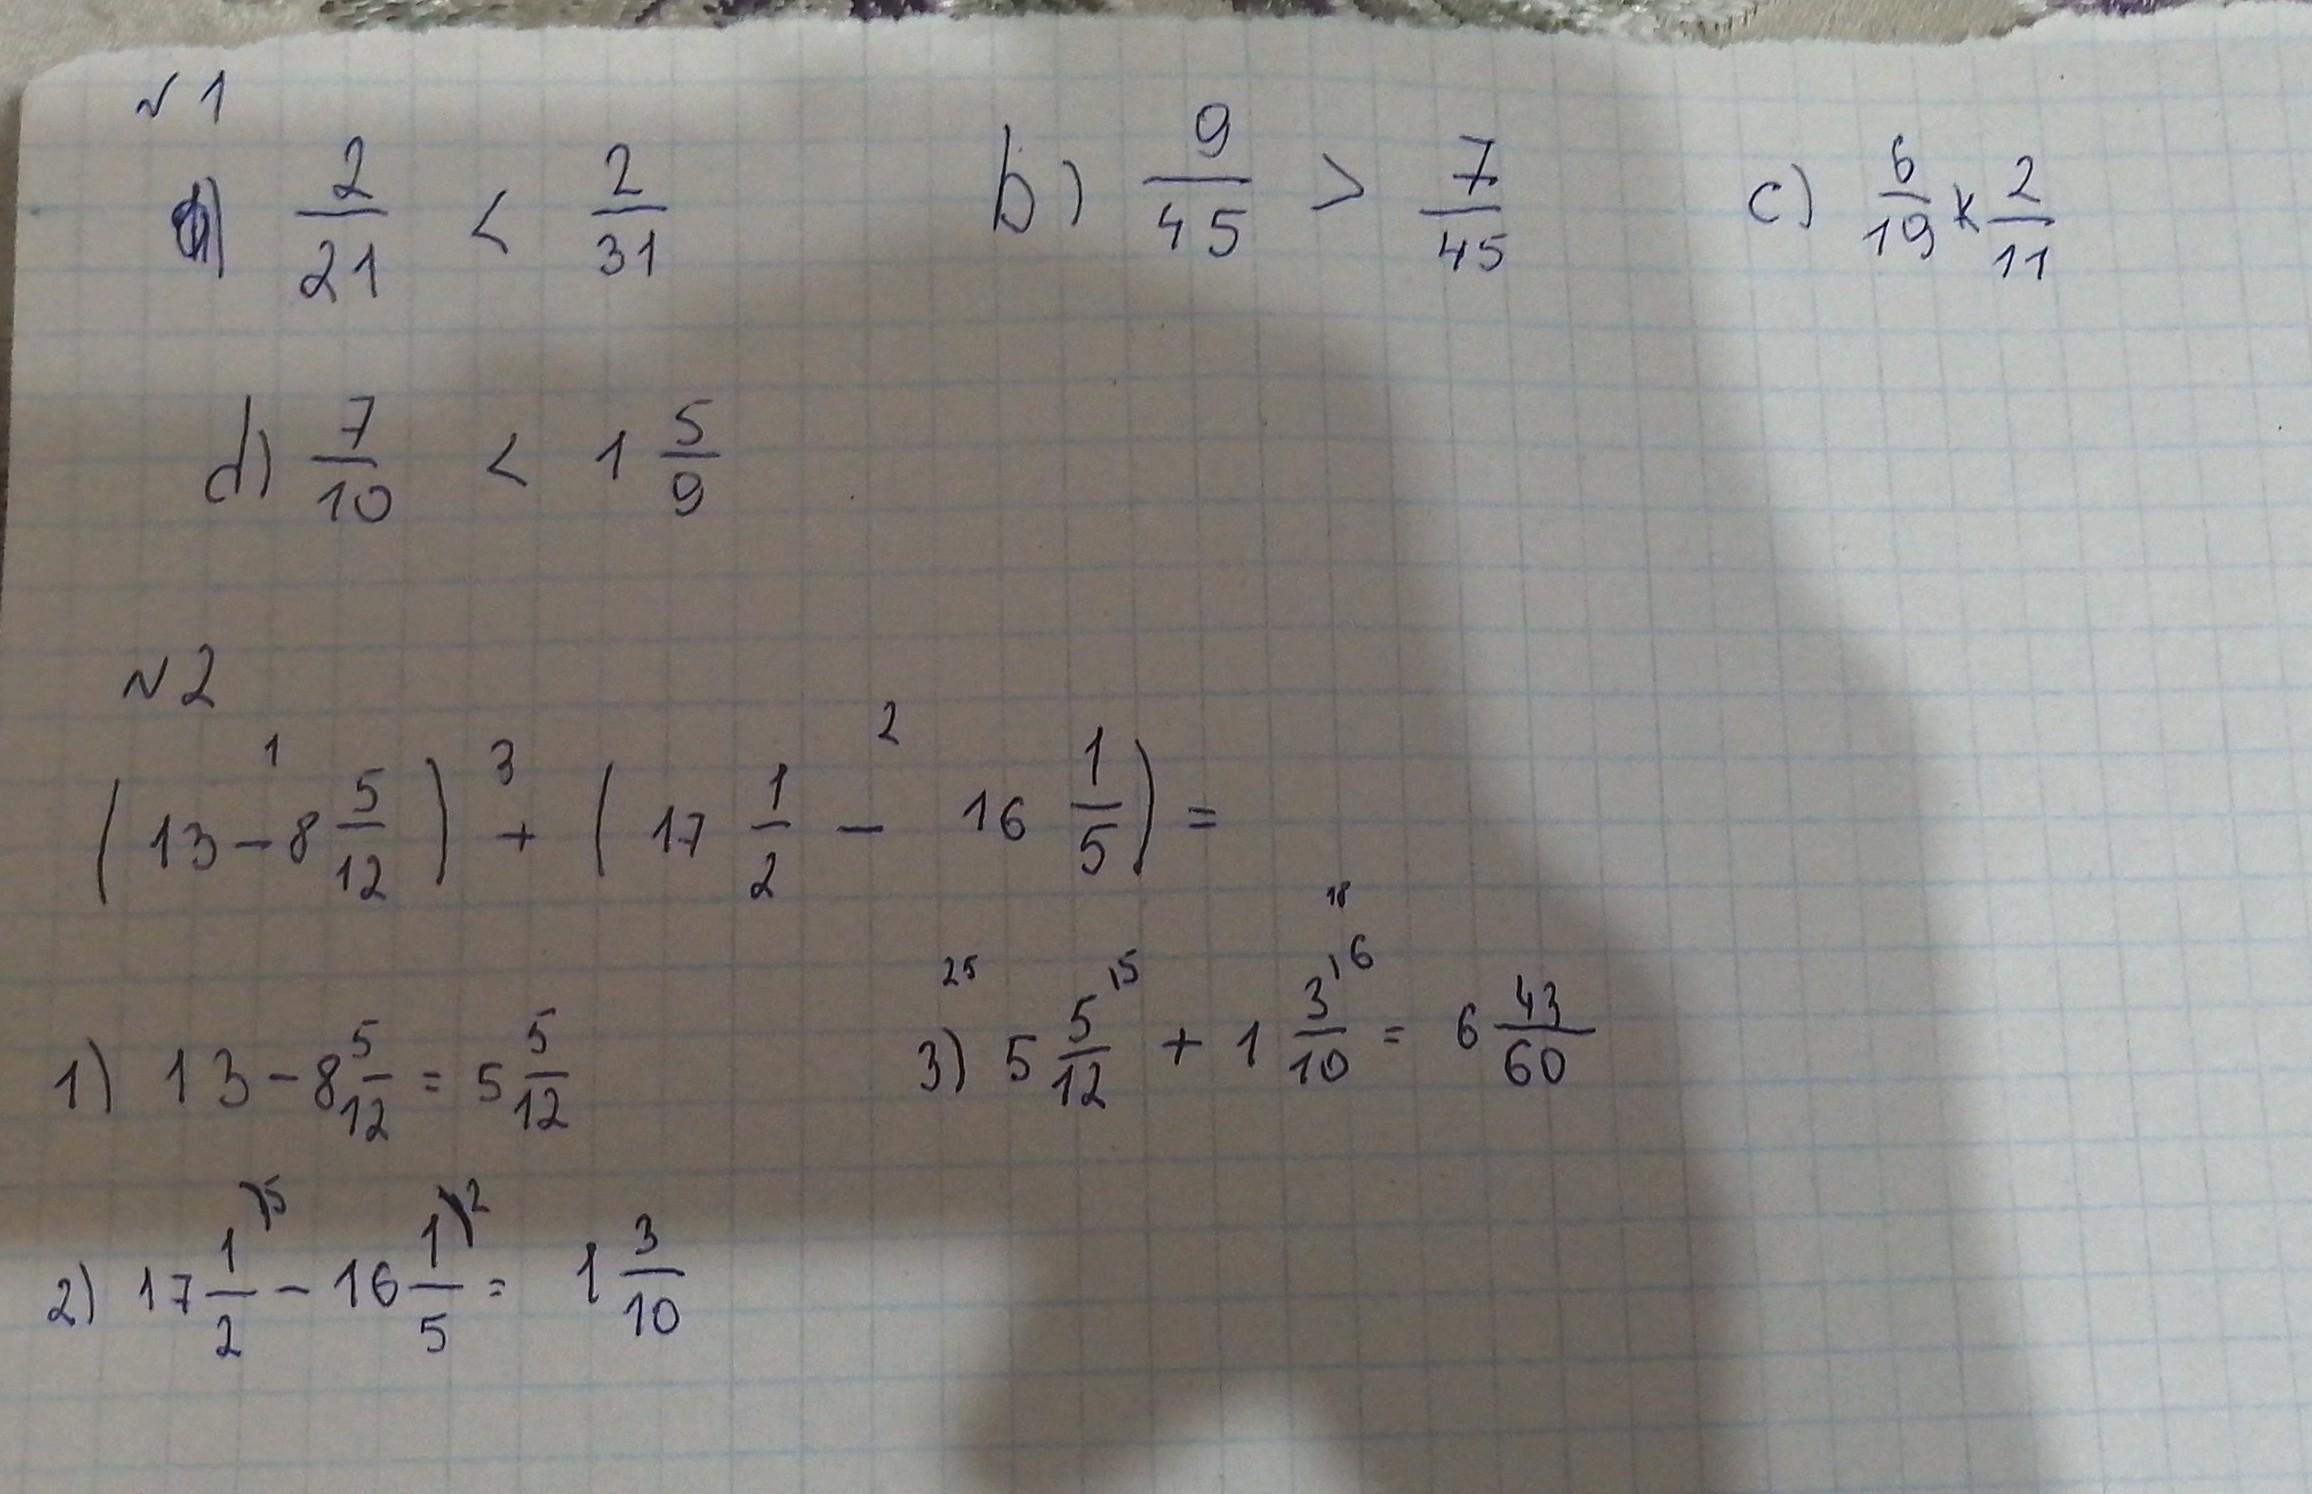 № 1
a) 2/21 < 2/31 b) 9/45 > 7/45 c) 6/19 < 2/11
d) 7/10 < 1 5/9
№ 2
(13 -¹ 8 5/12) +³ (17 1/2 -² 16 1/5) =
1) 13 - 8 5/12 = 5 5/12
2) 17 1/2⁾⁵ - 16 1/5⁾² = 1 3/10
3) ²⁵ 5 5/12⁾⁵ + 1 ¹⁸ 3/10⁾⁶ = 6 43/60